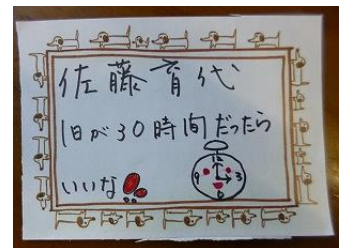 佐藤育代
1日が30時間だったら
いいな
9 3
6